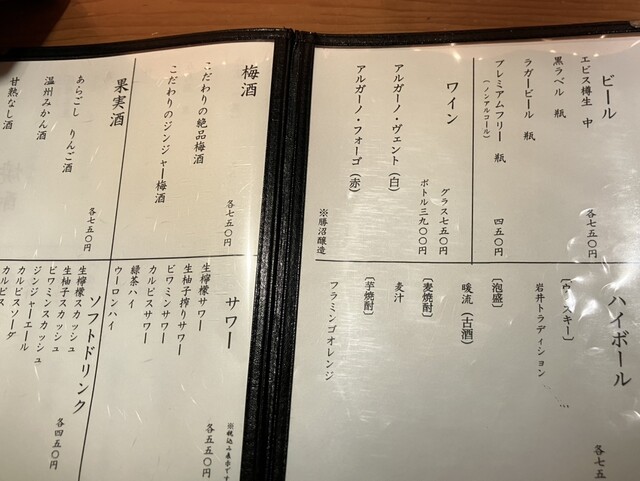 ビール
エビス樽生 中
黒ラベル 瓶
ラガービール 瓶
各七五〇円
プレミアムフリー 瓶
(ノンアルコール)
四五〇円
ワイン
グラス七五〇円
ボトル三九〇〇円
アルガーノ・ヴェント(白)
アルガーノ・フォーゴ(赤)
※勝沼醸造
ハイボール
各七五
岩井トラディション
[泡盛]
暖流(古酒)
[麦焼酎]
麦汁
[芋焼酎]
フラミンゴオレンジ
梅酒
こだわりの絶品梅酒
こだわりのジンジャー梅酒
各七五〇円
果実酒
あらごし りんご酒
温州みかん酒
甘熟なし酒
各七五〇円
サワー
※税込み表示です
生檸檬サワー
生柚子搾りサワー
ビワミンサワー
カルピスサワー
緑茶ハイ
ウーロンハイ
各五五〇円
ソフトドリンク
生檸檬スカッシュ
生柚子スカッシュ
ビワミンスカッシュ
ジンジャーエール
カルピスソーダ
カルピス
各四五〇円